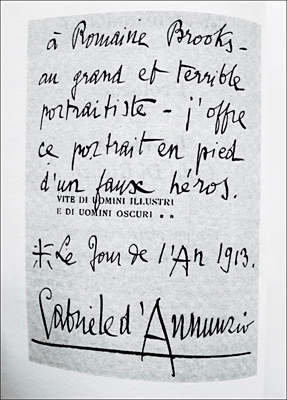 à Romaine Brooks -
au grand et terrible
portraitiste - j'offre
ce portrait en pied
d'un faux héros.
VITE DI UOMINI ILLUSTRI
E DI UOMINI OSCURI
Le Jour de l'An 1913.
Gabriele d'Annunzio